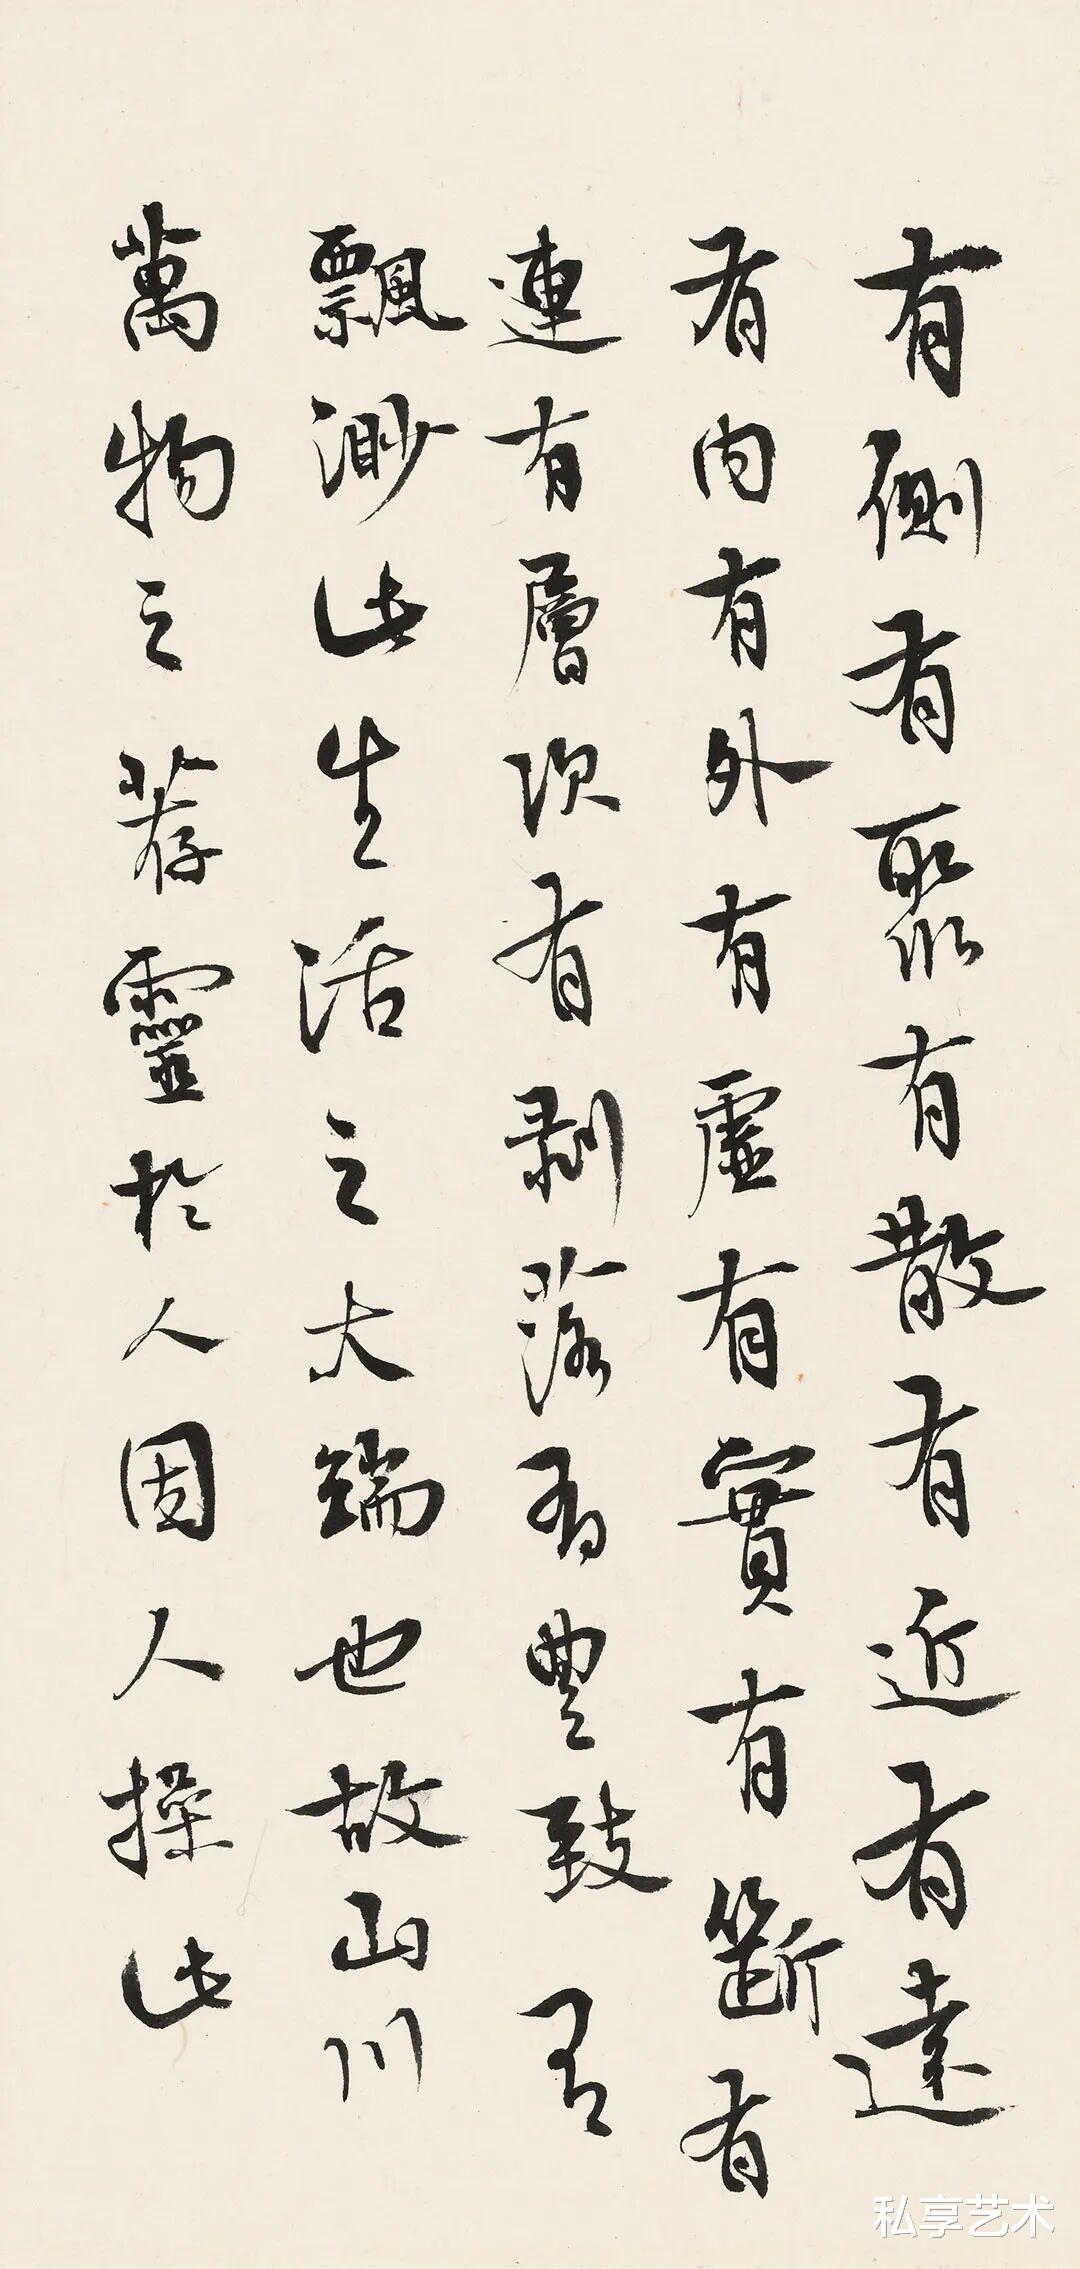 有側有聚有散有近有遠
有内有外有虛有實有斷有
連有層次有剥落有豐致有
飄渺此生活之大端也故山川
萬物之荐靈於人因人操此
私享艺术